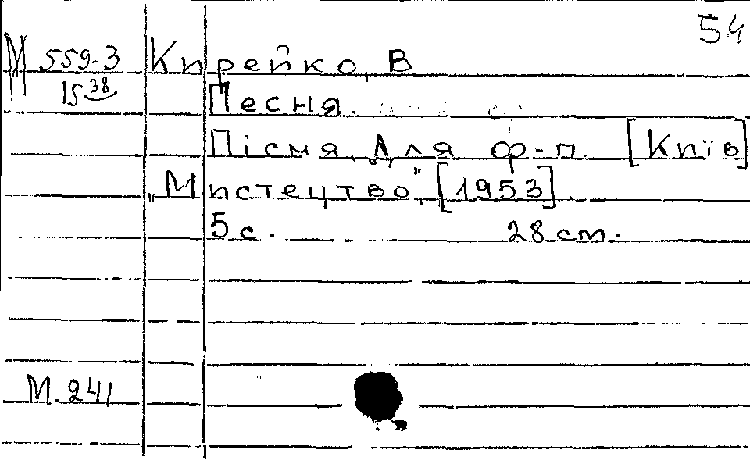 54
М 559-3 Кирейко, В
15 38
Песня.
Пісня. Для ф-п. [Київ]
„Мистецтво", [1953]
5 с. 28 cm.
М. 241